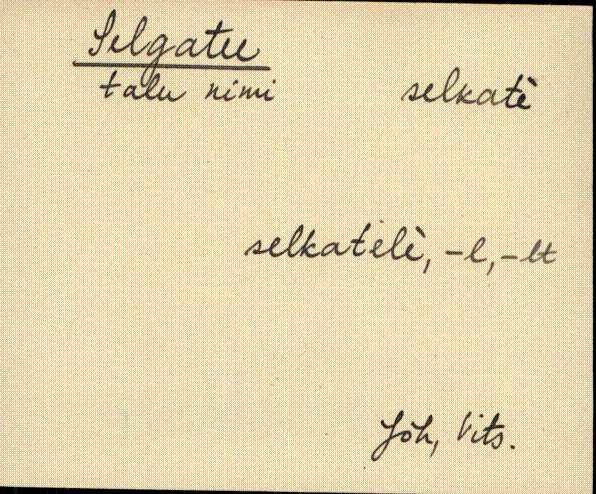 Selgatee
talu nimi selkatè
selkatelè, -l, -lt
Jõh, Vits.